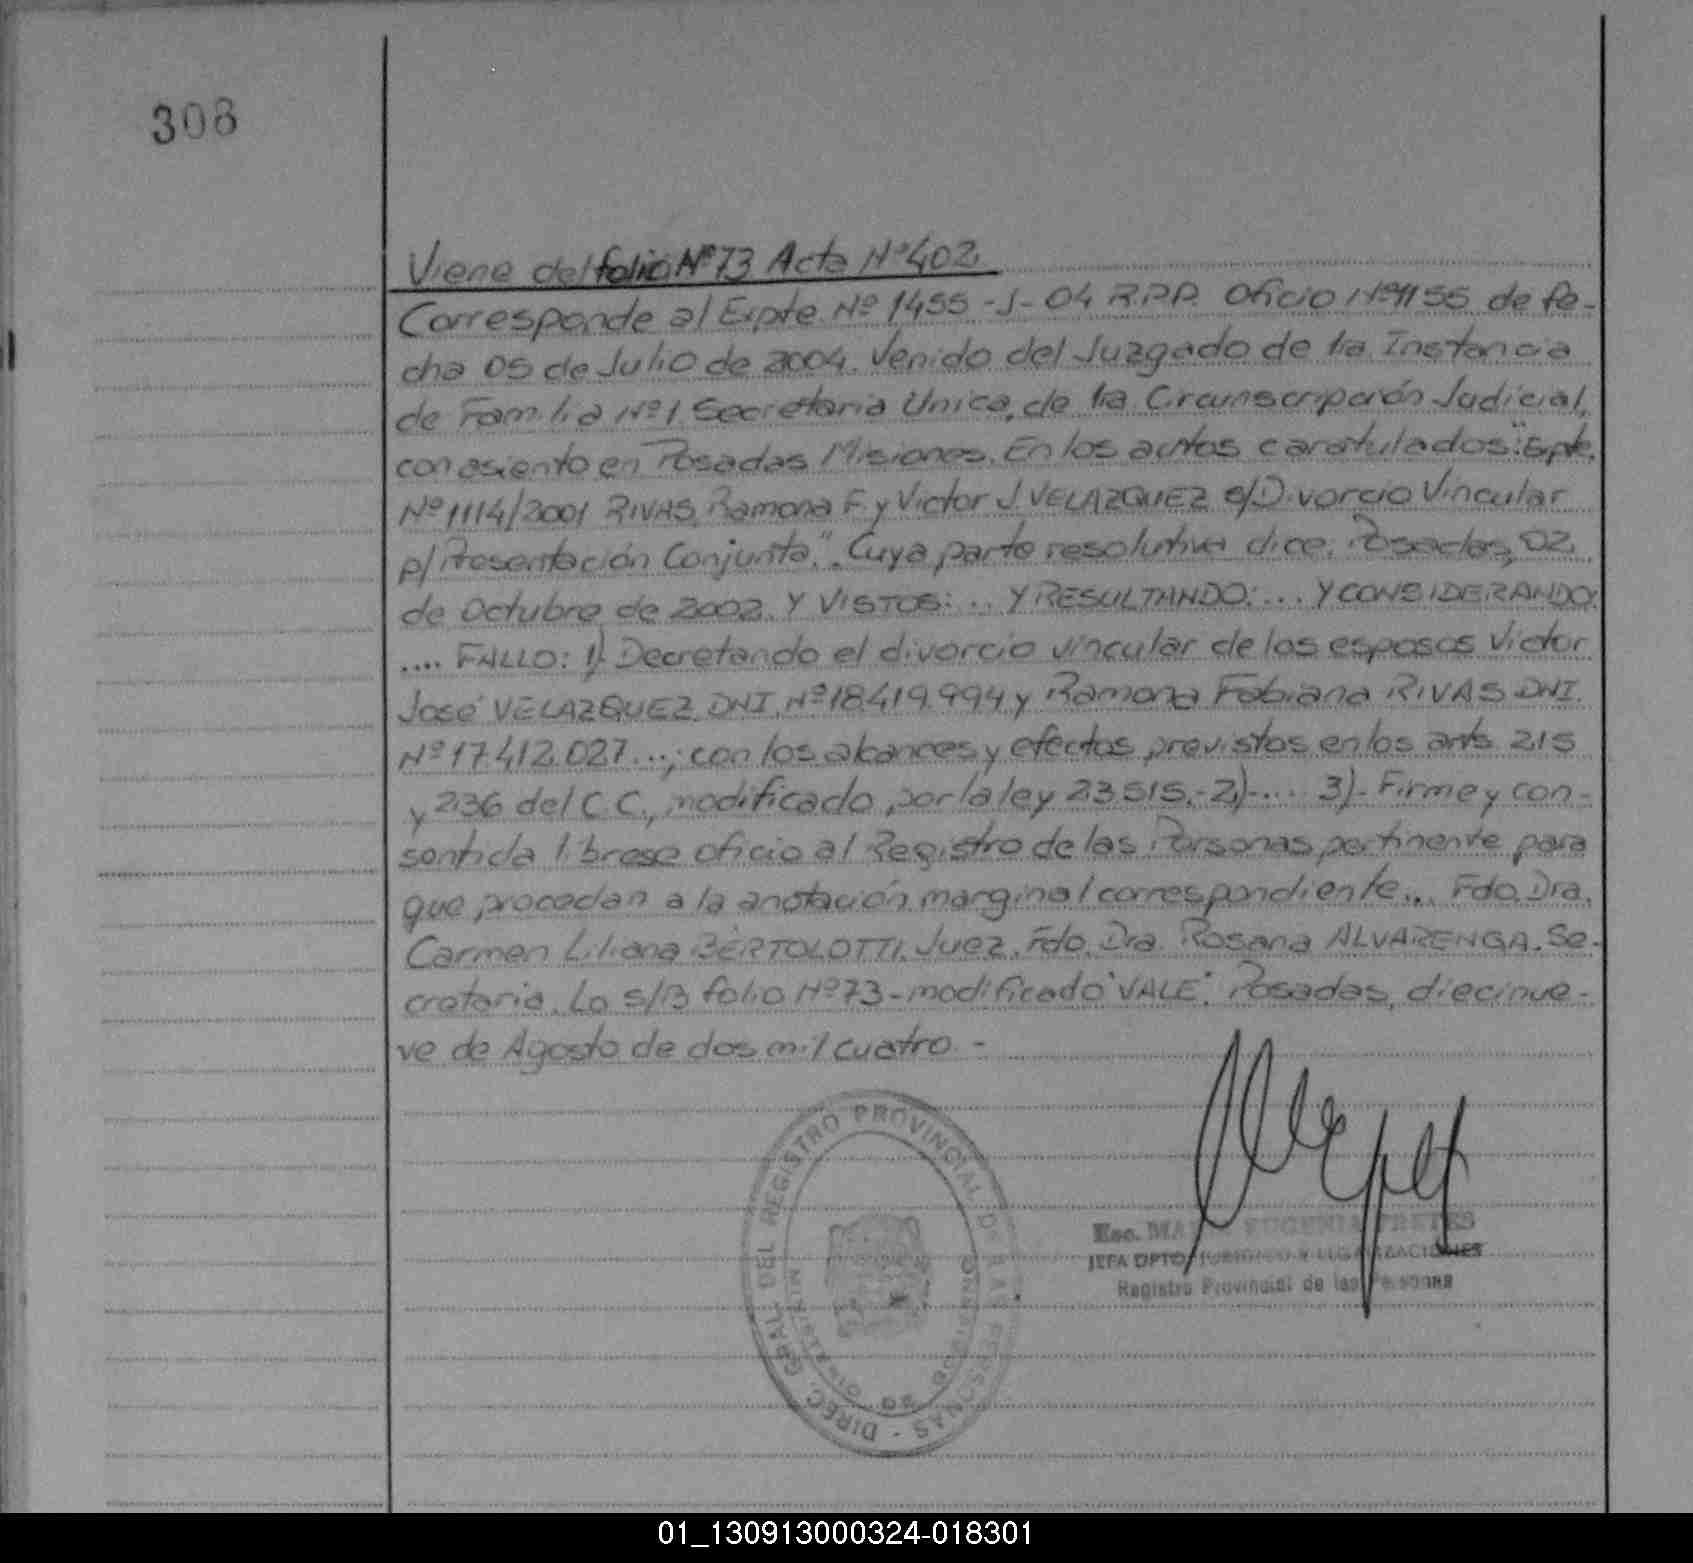 308
Viene del folio Nº73 Acta Nº402.
Corresponde al Expte. Nº 1455 -J- 04 R.P.P. Oficio Nº1155 de fe-
cha 05 de Julio de 2004. Venido del Juzgado de 1ra. Instancia
de Familia Nº1 Secretaria Unica, de 1ra Circunscripción Judicial,
con asiento en Posadas Misiones. En los autos caratulados: "Expte.
Nº1114/2001 RIVAS, Ramona F. y Victor J. VELAZQUEZ s/Divorcio Vincular
p/Presentación Conjunta". Cuya parte resolutiva dice. Posadas, 02
de Octubre de 2002. Y VISTOS: ... Y RESULTANDO: ... Y CONSIDERANDO:
.... FALLO: 1) Decretando el divorcio vincular de los esposos Victor
José VELAZQUEZ, DNI. Nº18.419.994 y Ramona Fabiana RIVAS DNI.
Nº17.412.027...; con los alcances y efectos previstos en los arts. 215
y 236 del C.C., modificado por la ley 23.515.-2)-.... 3)- Firme y con-
sentida líbrese oficio al Registro de las Personas pertinente para
que procedan a la anotación marginal correspondiente... Fdo. Dra.
Carmen Liliana BERTOLOTTI. Juez. Fdo. Dra. Rosana ALVARENGA. Se-
cretaria. Lo s/B folio Nº73-modificado "VALE". Posadas, diecinue-
ve de Agosto de dos mil cuatro.-
DIREC. GRAL. DEL REGISTRO PROVINCIAL DE LAS PERSONAS
MINISTERIO DE GOBIERNO
Esc. MARIA EUGENIA FRETES
JEFA DPTO. JURIDICO Y LEGALIZACIONES
Registro Provincial de las Personas
01_130913000324-018301